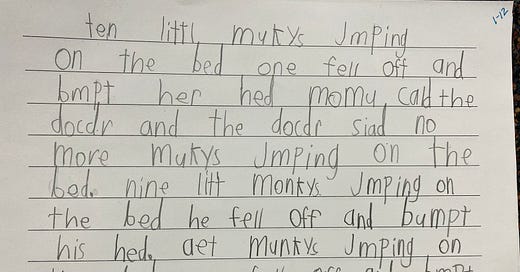 1-12
ten littl mukys Jmping
on the bed one fell off and
bmpt her hed momy cald the
docdr and the docdr siad no
more mukys Jmping on the
bed. nine litt monkys Jmping on
the bed he fell off and bumpt
his hed. aet munkys Jmping on